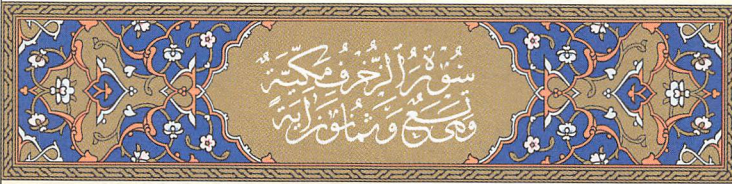 سُوْرَةُ الزُّخْرُفِ مَكِّيَّةٌ
وَهِيَ تِسْعٌ وَثَمَانُونَ آيَةً